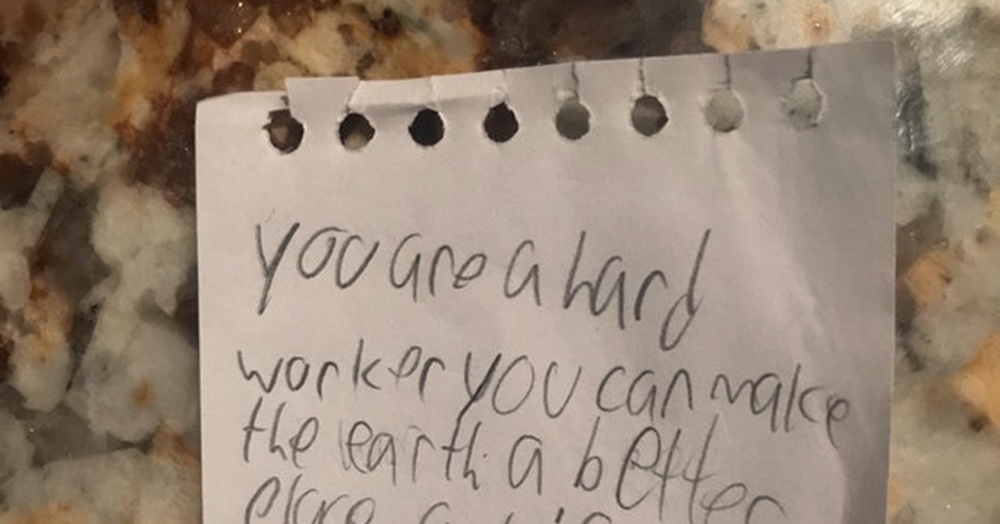 you are a hard
worker you can make
the earth a better